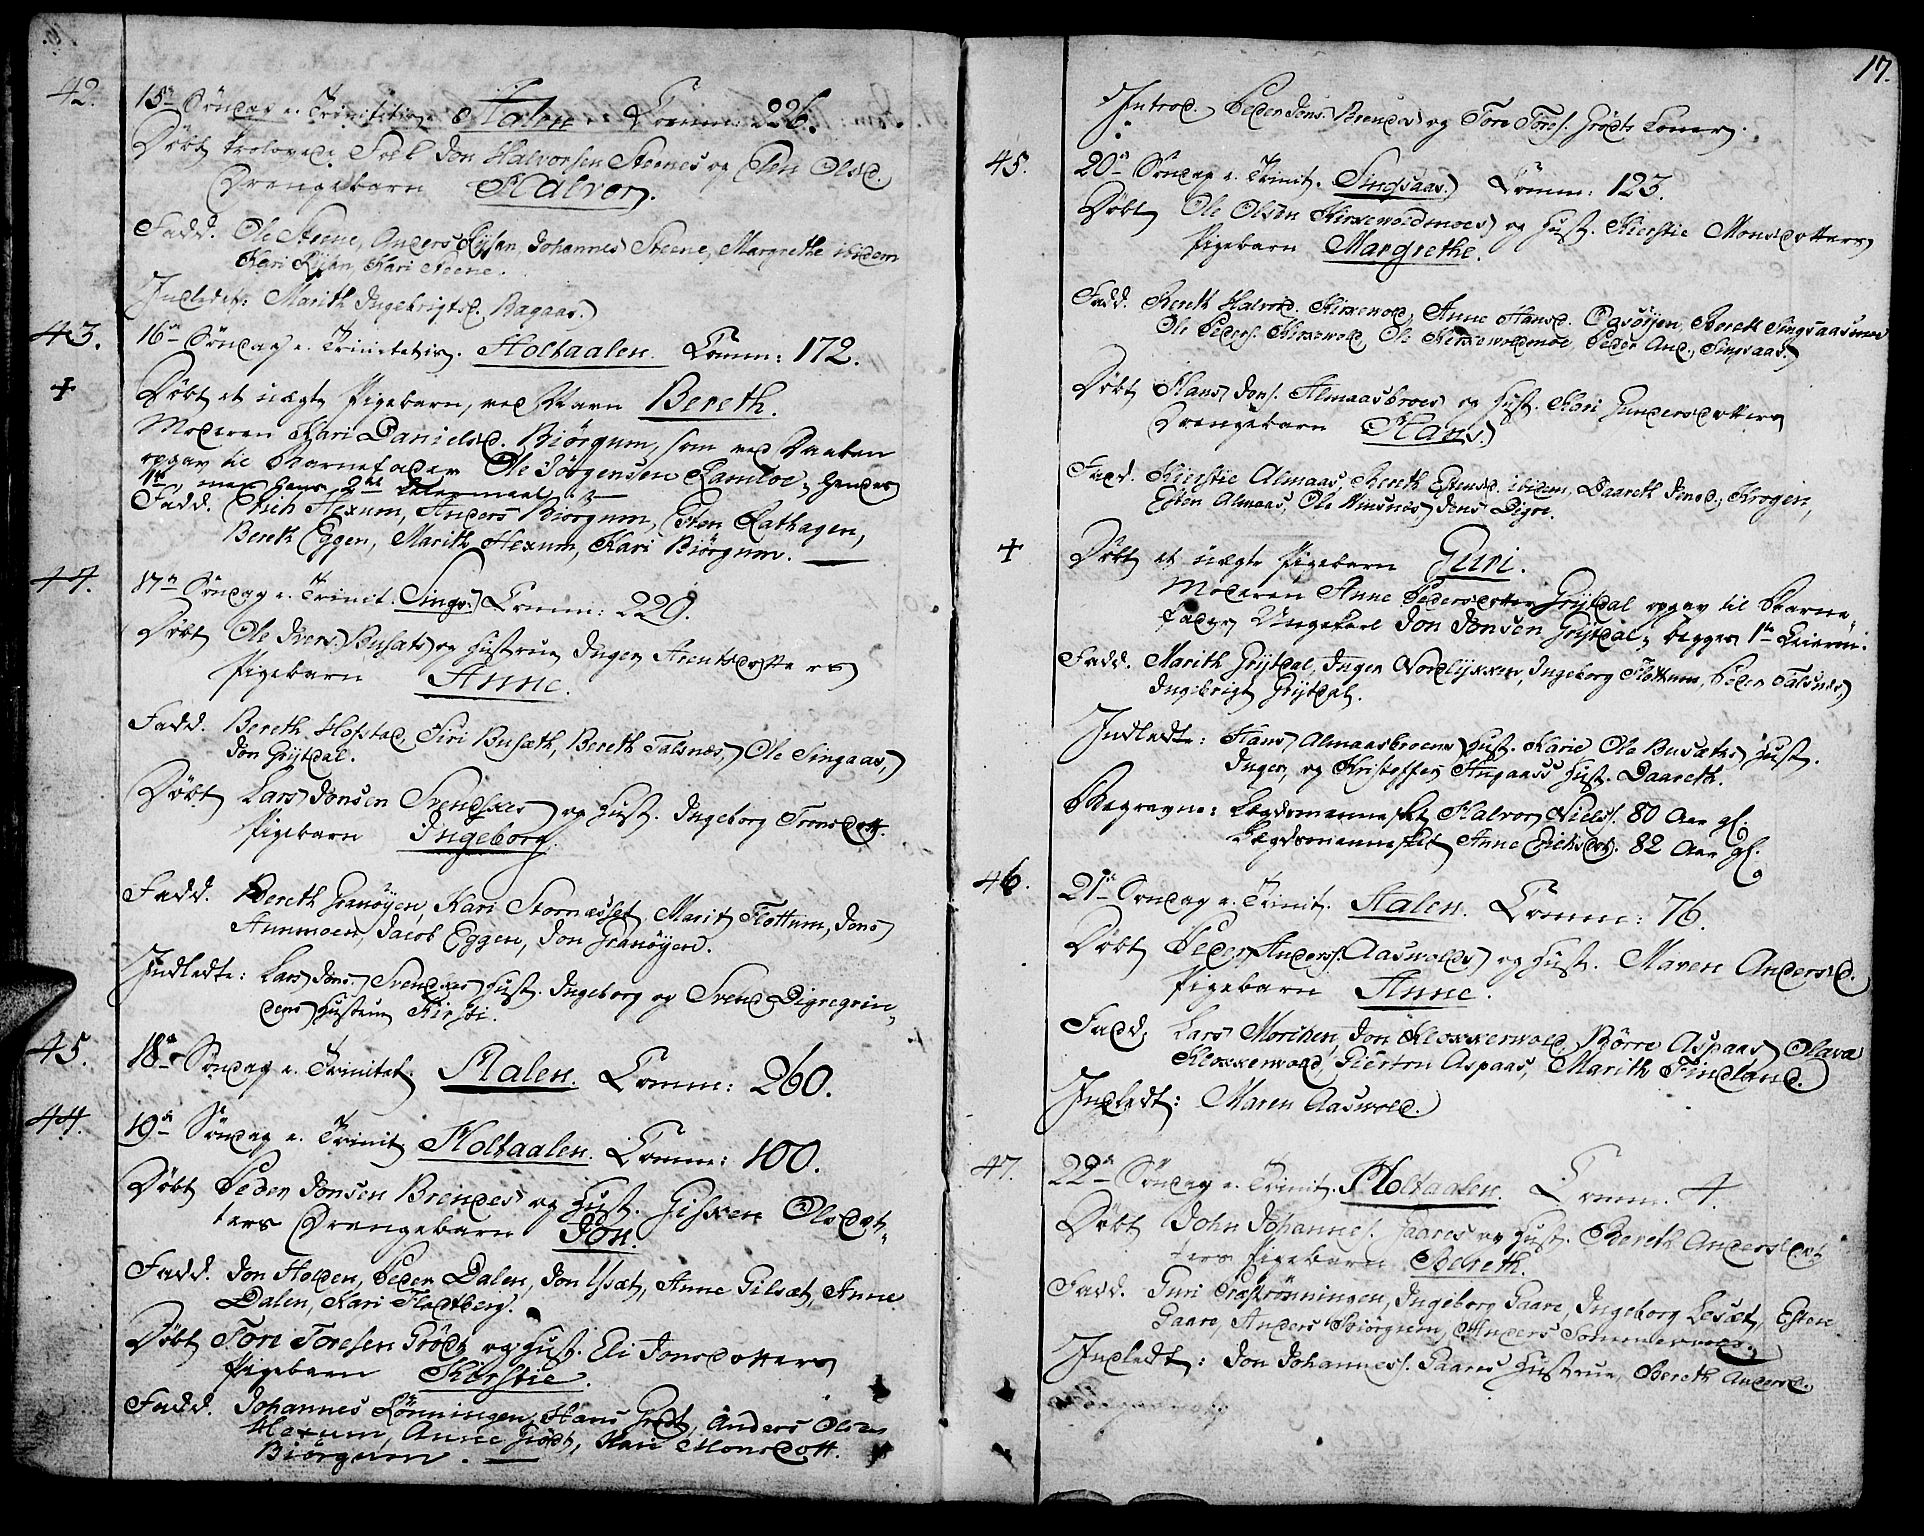 42. 15de Søndag e. Trinitatis. Aalen. Comm: 226.
Døbt trolovede Sold. Jon Halvorsen Steenes og Elen Olsd.
Drengebarn Halvor.
Fadd. Ole Steene, Anders Ryhan, Johannes Steene, Margrethe ibidem
Kari Ryhan, Kari Steene.
Indledt: Marith Ingebrigtsd. Bagaas.
43. 16de Søndag e. Trinitatis. Holtaalen. Comm: 172.
+ Døbt et uægte Pigebarn, ved Navn Bereth.
Moderen Kari Danielsd. Biørgum, som ved Daaben
opgav til Barnefader Ole Jørgensen Ramloe, hendes
1te, men hans 2det Leiermaal
Fadd. Erich Hexum, Anders Biørgum, Esten Lathagen,
Bereth Eggen, Marith Hexum, Kari Biørgum.
44. 17de Søndag e. Trinit. Singsaas Comm: 229.
Døbt Ole Ivers. Busats og Hustrue Inger Arentsdatters
Pigebarn Anne.
Fadd. Bereth Hofstad, Siri Busæth, Bereth Talsnes, Ole Singaas,
Jon Grytdal.
Døbt Lars Jonsen Svendsxes og Hust. Ingeborg Tronsdott.
Pigebarn Ingeborg.
Fadd. Bereth Granøyen, Kari Stornesset, Marit Flottum, Jens
Aunmoen, Jacob Eggen, Jon Granøyen.
Indledte: Lars Jons. Svendsxes Hust. Ingeborg og Svend Digregrin-
dens Hustrue Kirsti.
45. 18de Søndag e. Trinitat. Aalen. Comm: 260.
44. 19de Søndag e. Trinit. Holtaalen. Comm: 100.
Døbt Peder Jonsen Brendes og Hust. Gisxen Olsdat-
ters Drengebarn Jon.
Fadd. Jon Holden, Peder Dalen, Jon Ysæt, Anne Gilsæt, Anne
Dalen, Kari Flodtberg.
Døbt Tore Toresen Grødt og Hust. Eli Jonsdotters
Pigebarn Kirstie.
Fadd. Johannes Rønningen, Hans Grødt, Anders Olsen
Hexum, Anne Grødt, Kari Monsdott.
Biørgum.
17.
Introd. Peder Jons. Brendes og Tore Tores. Grødts Koner.
45. 20de Søndag e. Trinit. Singsaas. Comm: 123.
Døbt Ole Olsen Kirxevoldmoes og Hust. Kierstie Monsdotters
Pigebarn Margrethe.
Fadd. Bereth Halvorsd. Kirxevold, Anne Hansd. Casøyen, Bereth Singsaasmoe
Ole Peders. Kirxevold, Ole Kirxevoldmoe, Peder And. Singsaas.
Døbt Hans Jons. Almaasbroes og Hust. Kari Gundersdotters
Drengebarn Hans.
Fadd. Kierstie Almaas, Bereth Estensd. ibidem, Daareth Jonsd. Krogen,
Esten Almaas, Ole Winsnes, Jens Digre.
+ Døbt et uægte Pigebarn Guri.
Moderen Anne Pedersdotter Grytdal opgav til Barne-
fader, Ungekarl Jon Jonsen Grytdal, begges 1te Leierm.
Fadd. Marith Grytdal, Inger Nordlyxxen, Ingeborg Flottum, Peder Talsnes,
Ingebrigt Grytdal.
Indledte: Hans Almaasbroens Hust. Karie Ole Busæths Hust.
Inger, og Kristoffer Augaass Hust. Daareth.
Begravne: Lægdsmennesket Halvor Niels. 80 Aar gl.
Lægdsmennesket Anne Erichsd. 82 Aar gl.
46. 21de Søndag e. Trinit. Aalen. Comm: 76.
Døbt Peder Anders. Aasvolds og Hust. Maren Andersd.
Pigebarn Anne.
Fadd. Lars Morchen, Jon Kloxxervold, Børre Aspaas, Olava
Kloxxervold, Kierston Aspaas, Marith Findland.
Indledt: Maren Aasvold.
47. 22de Søndag e. Trinit. Holtaalen. Comm. 4.
Døbt John Johannes. Gaares og Hust. Bereth Andersdot
ters Pigebarn Bereth.
Fadd. Guri Præstrønningen, Ingeborg Gaare, Ingeborg Lesæt, Esten
Gaare, Anders Biørgum, Anders Sommervold.
Indledt: Jon Johannes. Gaares Hustrue Bereth Andersd.